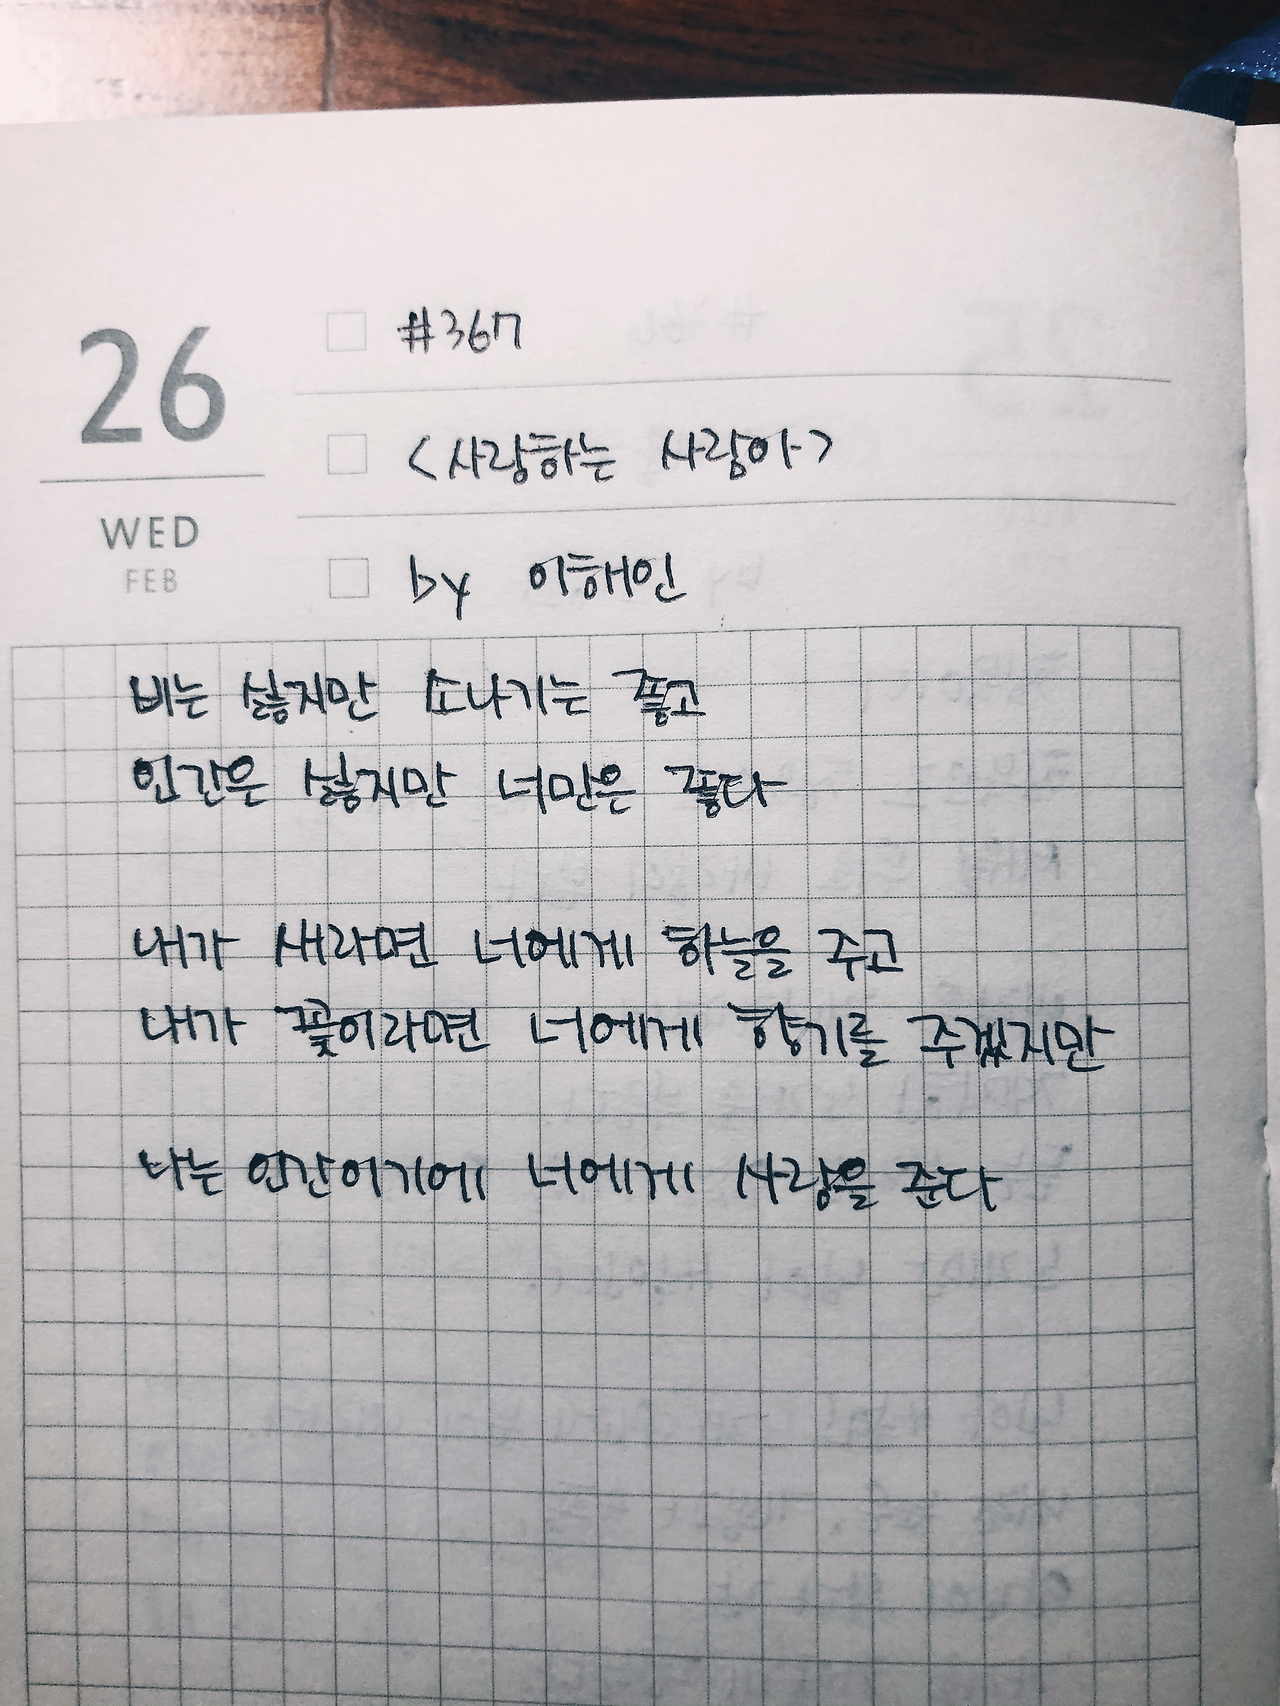 26
WED
FEB
#367
<사랑하는 사람아>
by 이해인
비는 싫지만 소나기는 좋고
인간은 싫지만 너만은 좋다
내가 새라면 너에게 하늘을 주고
내가 꽃이라면 너에게 향기를 주겠지만
나는 인간이기에 너에게 사랑을 준다